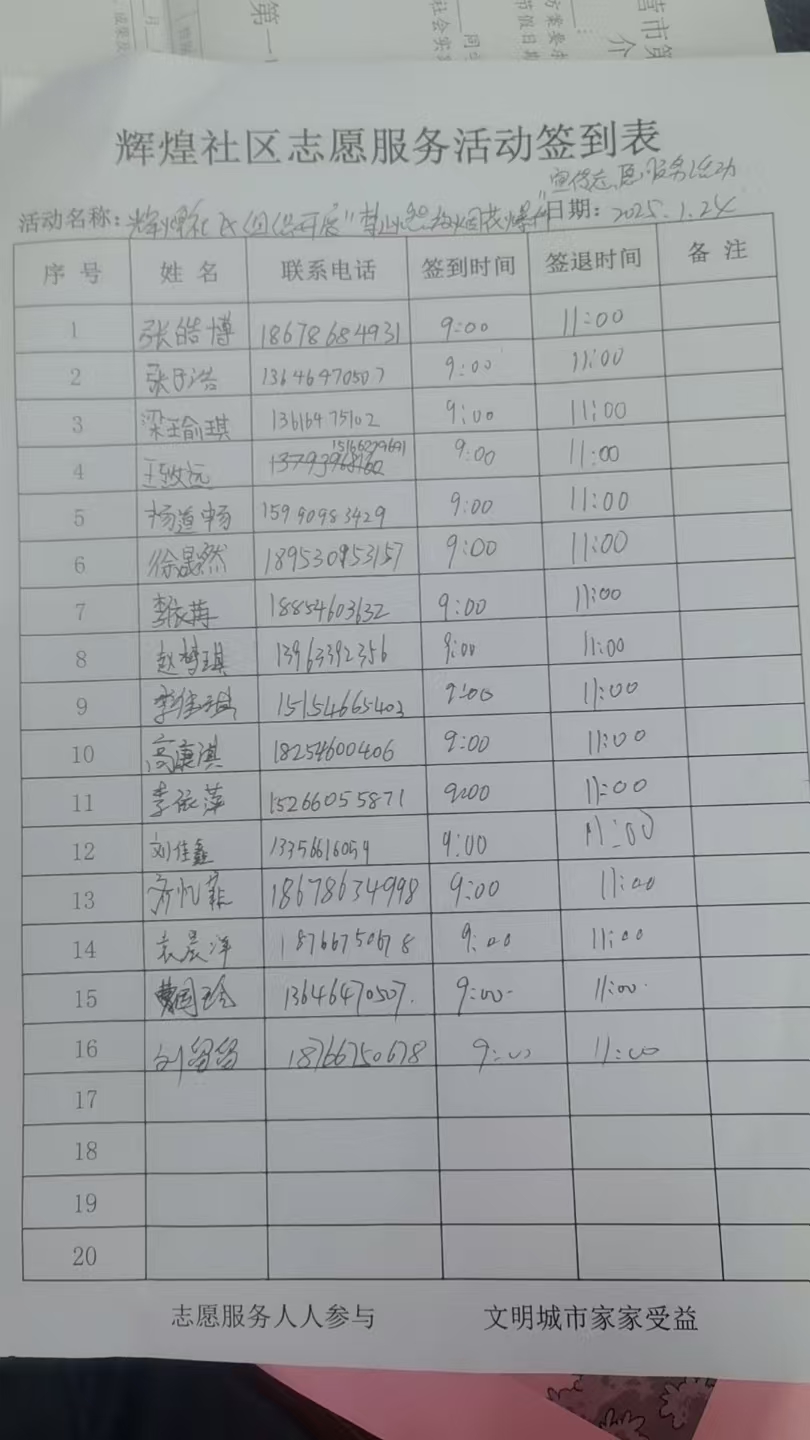 第一
辉煌社区志愿服务活动签到表
宣传志愿服务活动
活动名称：辉煌社区组织开展"禁止燃放烟花爆竹" 日期：2025.1.24
序号 姓名 联系电话 签到时间 签退时间 备注
1 张皓博 18678684931 9:00 11:00
2 张子浩 13646470507 9:00 11:00
3 梁瑜琪 13616475102 9:00 11:00
15166279691
4 王致远 9:00 11:00
5 杨道畅 15990983429 9:00 11:00
6 徐晟然 189530953157 9:00 11:00
7 18854603632 9:00 11:00
8 赵梦琪 13963392356 9:00 11:00
9 15154665403 9:00 11:00
10 高康淇 18254600406 9:00 11:00
11 李依萍 15266055871 9:00 11:00
12 刘佳鑫 13356616059 9:00 11:00
13 齐忆菲 18678634998 9:00 11:00
14 袁晨洋 18766750678 9:00 11:00
15 13646470507. 9:00 11:00
16 18766750678 9:00 11:00
17
18
19
20
志愿服务人人参与 文明城市家家受益